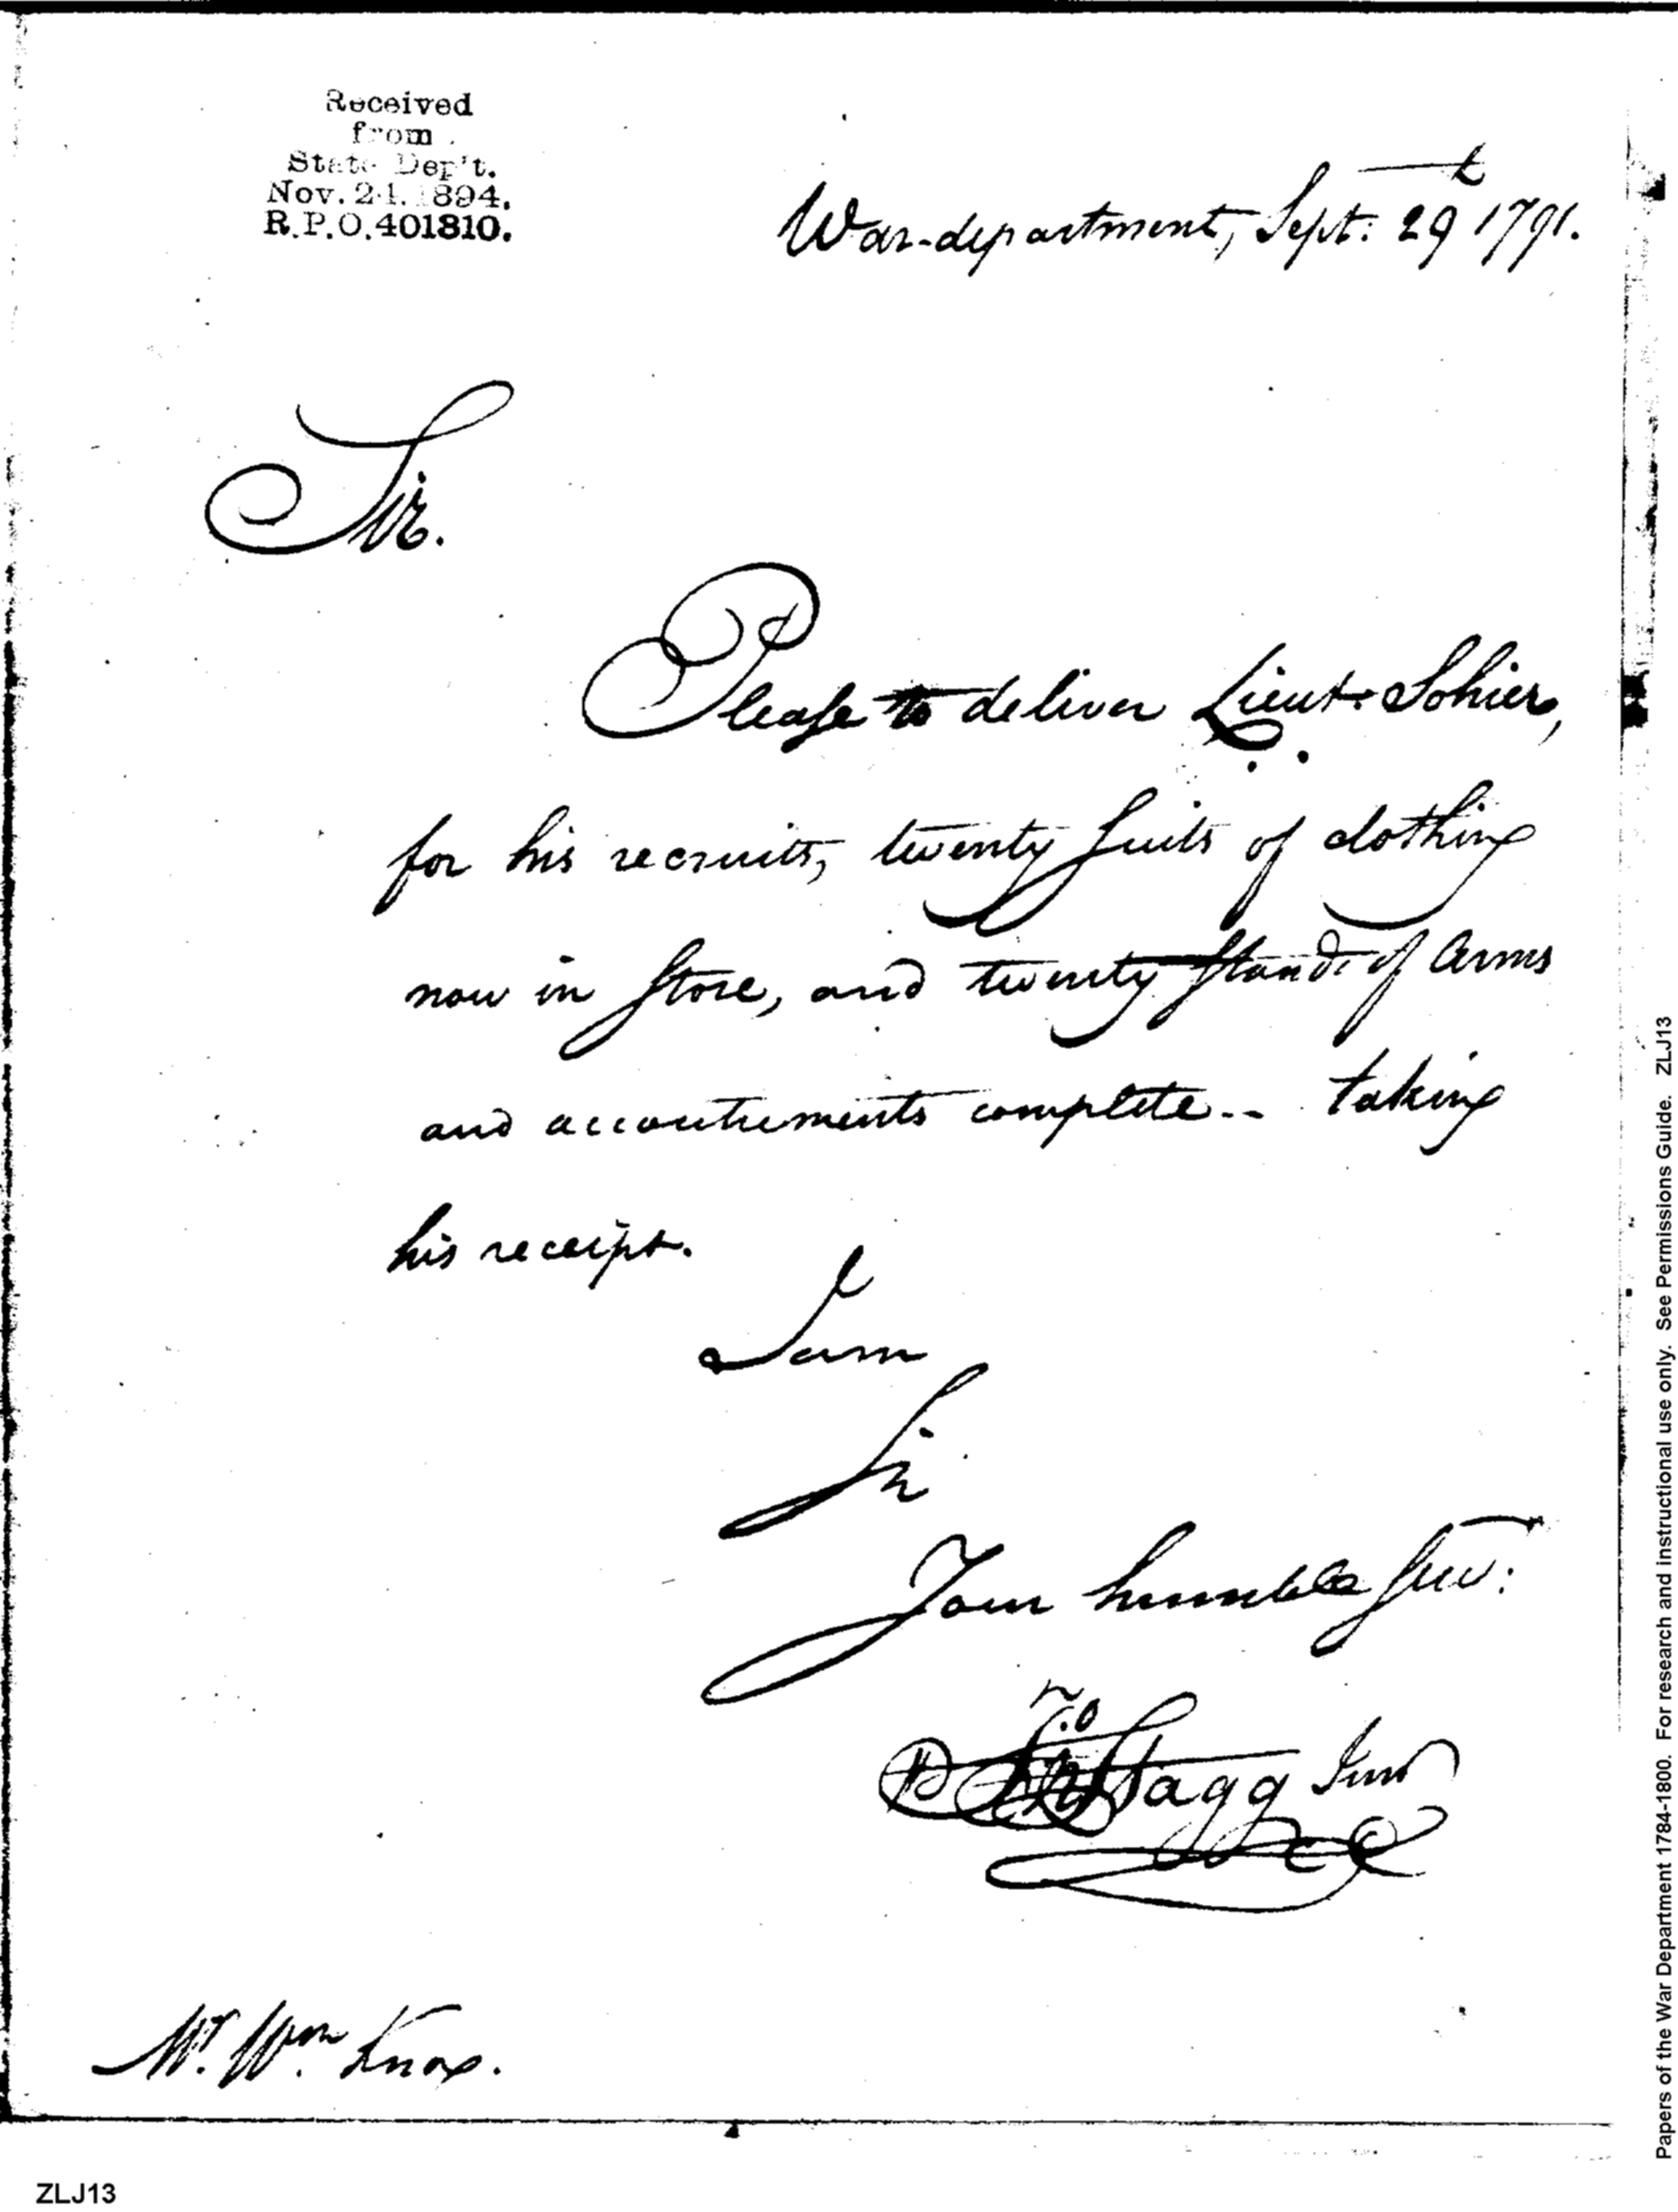 Received
from
State Dep't.
Nov. 21. 1894.
R.P.O. 401810.
War-department, Sept: 29th 1791.
Sir.
Please to deliver Lieut. Sohier,
for his recruits, twenty suits of clothing
now in store, and twenty stands of Arms
and accoutrements complete -- taking
his receipt.
I am
Sir
Your humble Serv:
Jno Stagg Junr
Mr. Wm. Knox.
Papers of the War Department 1784-1800. For research and instructional use only. See Permissions Guide. ZLJ13
ZLJ13